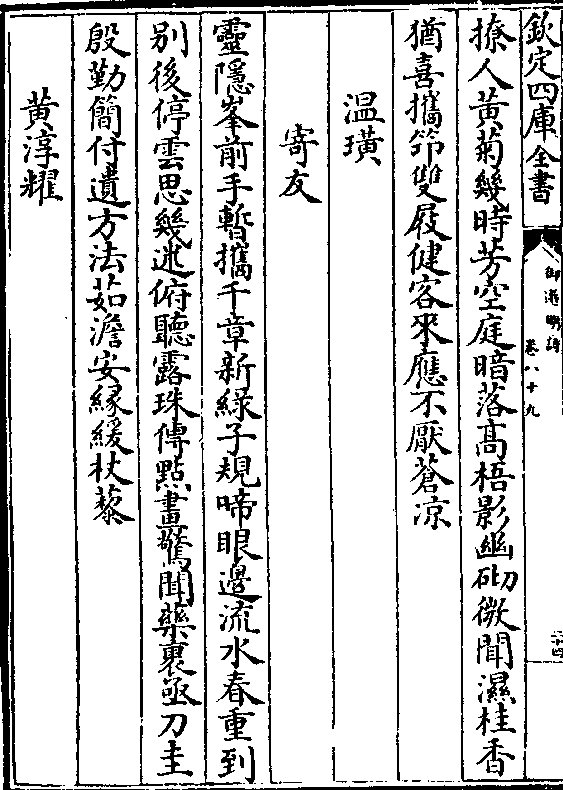 欽定四庫全書
御選明詩
卷八十九
二十四
撩人黄菊幾時芳空庭暗落髙梧影幽砌微聞濕桂香
猶喜攜笻雙屐健客來應不厭蒼凉
温璜
寄友
靈隱峯前手暫攜千章新緑子規啼眼邊流水春重到
别後停雲思幾迷俯聽露珠傳點畫驚聞藥裹亟刀圭
殷勤簡付遺方法茹澹安緣緩杖藜
黄淳耀